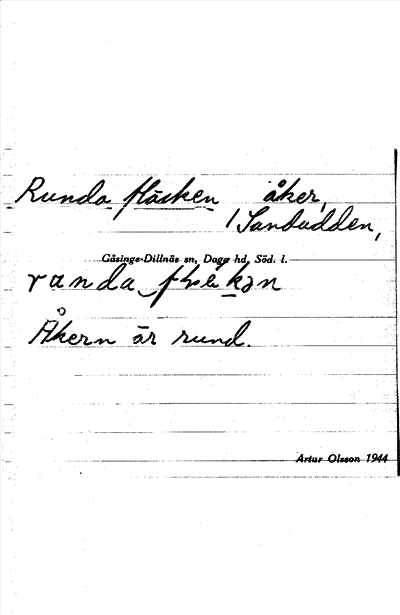 Runda fläcken åker,
1 Sandudden,
Gåsinge-Dillnäs sn, Daga hd, Söd. l.
Åkern är rund.
Artur Olsson 1944